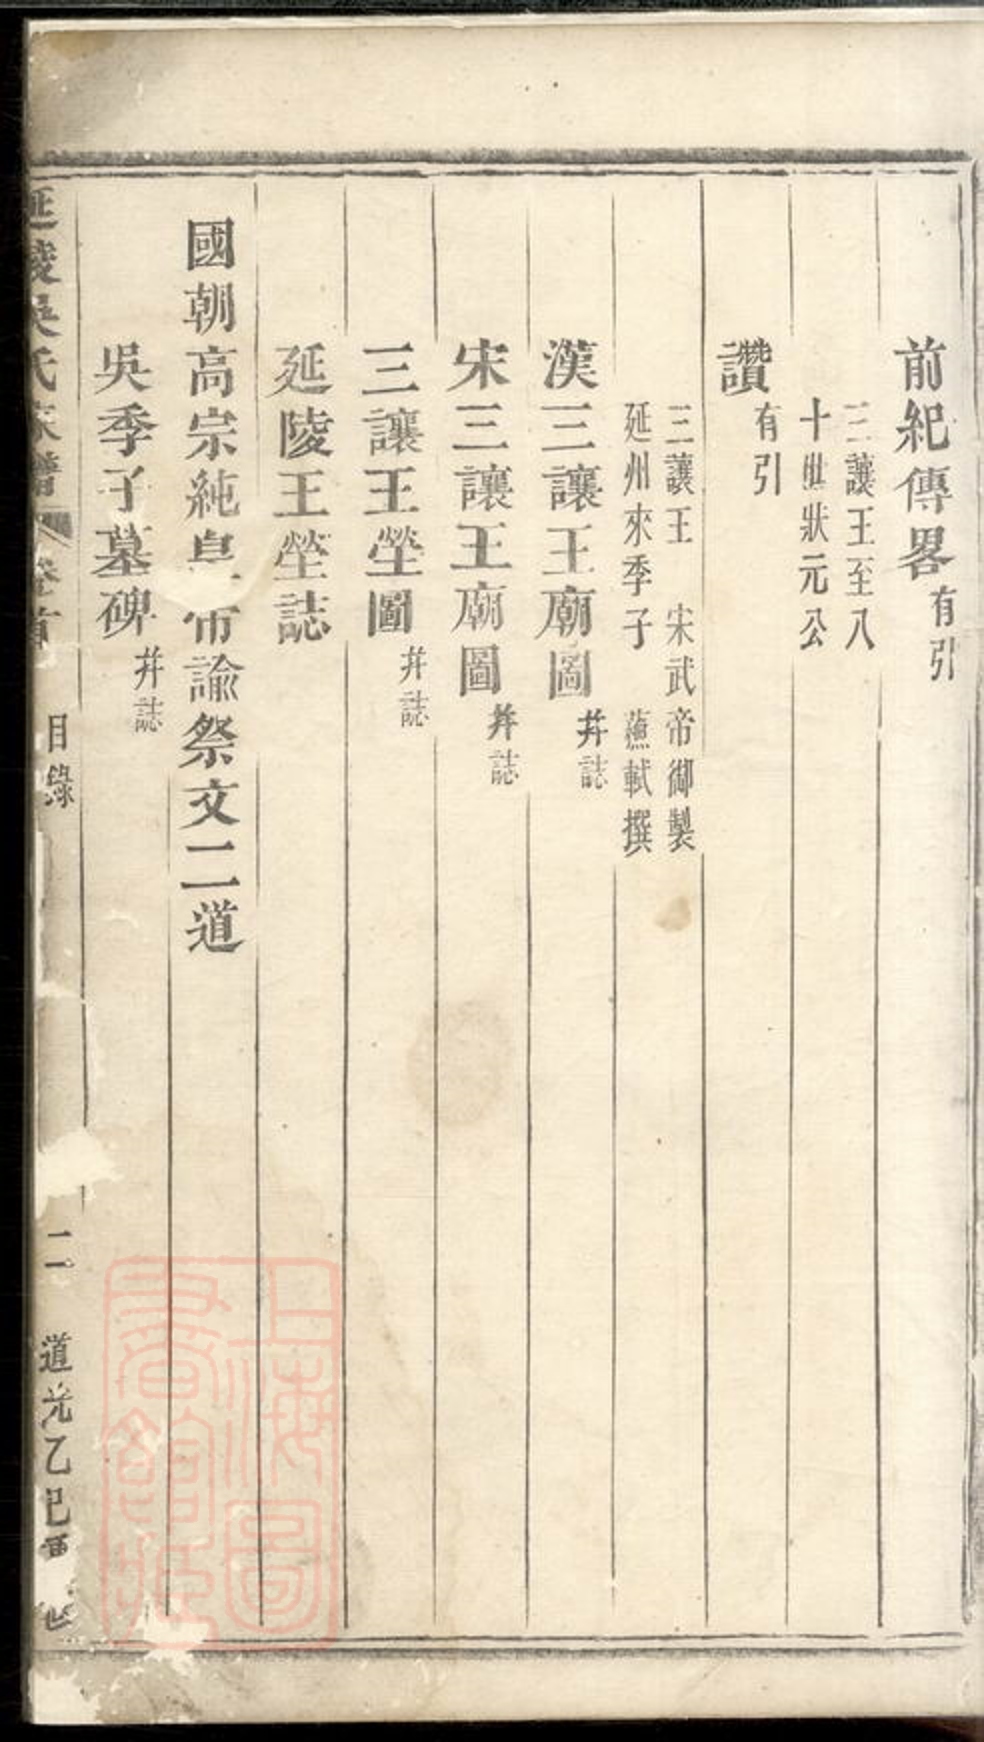 前紀傳畧有引
三讓王至八
十世狀元公
讚有引
三讓王 宋武帝御製
延州來季子 蘓軾撰
漢三讓王廟圖并誌
宋三讓王廟圖并誌
三讓王塋圖并誌
延陵王塋誌
國朝高宗純皇帝諭祭文二道
吳季子墓碑并誌
延陵吳氏宗譜 卷首 目錄 二 道光乙巳重
上海圖書館藏